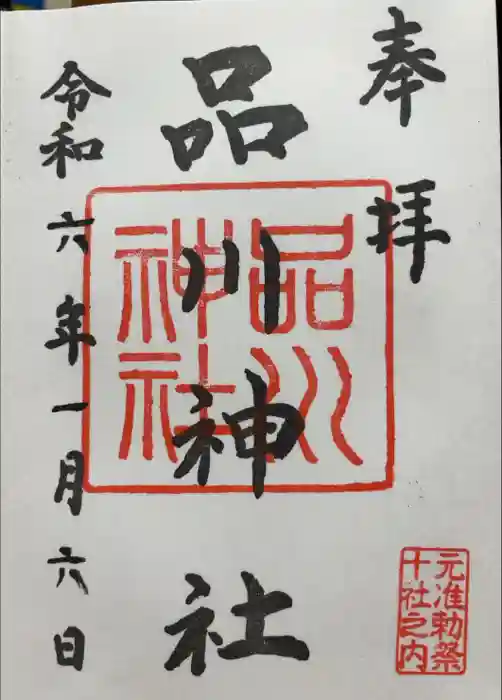 奉拝
品川神社
品川
神社
令和六年一月六日
元准勅祭
十社之内